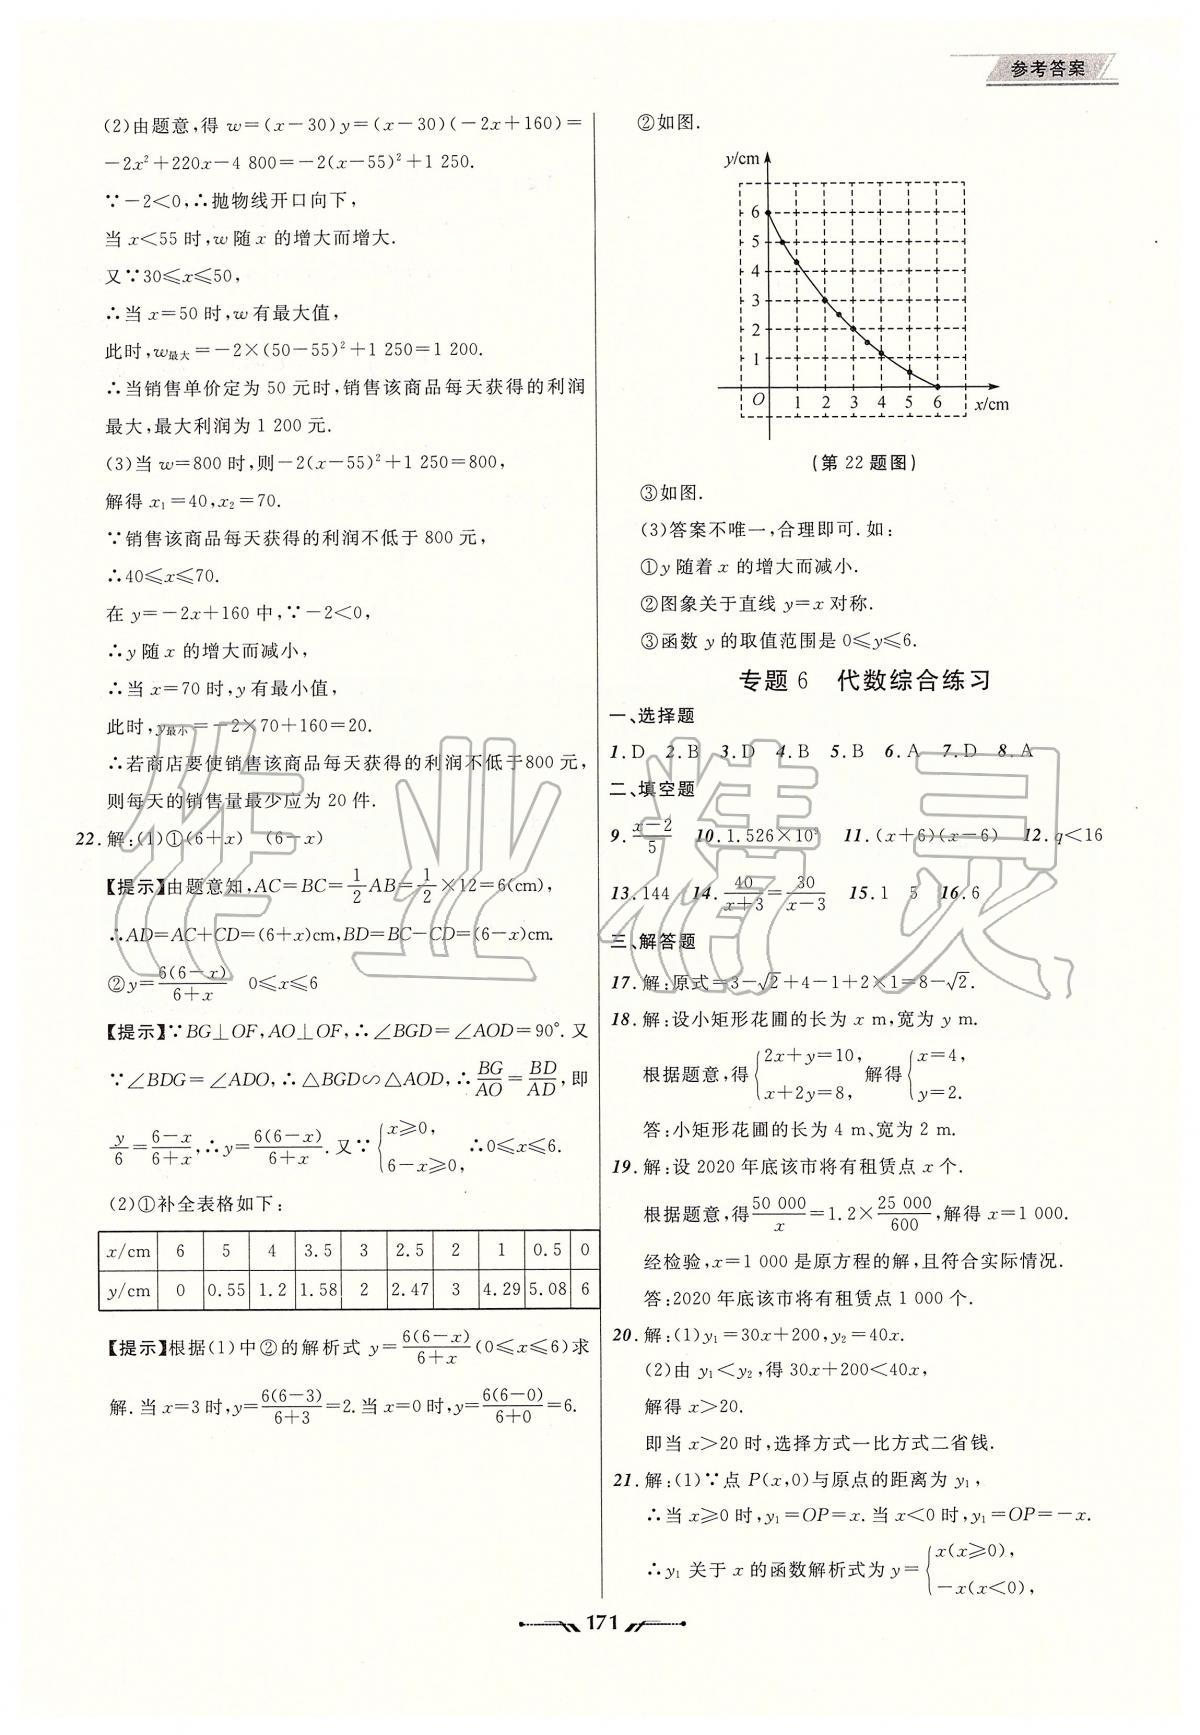 参考答案
(2)由题意,得 w=(x-30)y=(x-30)(-2x+160)=
-2x²+220x-4 800=-2(x-55)²+1 250.
∵-2<0,∴抛物线开口向下,
当 x<55 时,w 随 x 的增大而增大.
又∵30≤x≤50,
∴当 x=50 时,w 有最大值,
此时,w最大=-2×(50-55)²+1 250=1 200.
∴当销售单价定为 50 元时,销售该商品每天获得的利润
最大,最大利润为 1 200 元.
(3)当 w=800 时,则-2(x-55)²+1 250=800,
解得 x₁=40,x₂=70.
∵销售该商品每天获得的利润不低于 800 元,
∴40≤x≤70.
在 y=-2x+160 中,∵-2<0,
∴y 随 x 的增大而减小,
∴当 x=70 时,y 有最小值,
此时,y最小=-2×70+160=20.
∴若商店要使销售该商品每天获得的利润不低于800 元,
则每天的销售量最少应为 20 件.
22.解:(1)①(6+x) (6-x)
【提示】由题意知,AC=BC=1/2AB=1/2×12=6(cm),
∴AD=AC+CD=(6+x)cm,BD=BC-CD=(6-x)cm.
②y=6(6-x)/6+x 0≤x≤6
【提示】∵BG⊥OF,AO⊥OF,∴∠BGD=∠AOD=90°.又
∵∠BDG=∠ADO,∴△BGD∽△AOD,∴BG/AO=BD/AD,即
y/6=6-x/6+x,∴y=6(6-x)/6+x.又∵{x≥0, 6-x≥0, ∴0≤x≤6.
(2)①补全表格如下:
x/cm 6 5 4 3.5 3 2.5 2 1 0.5 0
y/cm 0 0.55 1.2 1.58 2 2.47 3 4.29 5.08 6
【提示】根据(1)中②的解析式 y=6(6-x)/6+x(0≤x≤6)求
解.当 x=3 时,y=6(6-3)/6+3=2.当 x=0 时,y=6(6-0)/6+0=6.
②如图.
y/cm
6
5
4
3
2
1
O 1 2 3 4 5 6 x/cm
(第 22 题图)
③如图.
(3)答案不唯一,合理即可.如:
①y 随着 x 的增大而减小.
②图象关于直线 y=x 对称.
③函数 y 的取值范围是 0≤y≤6.
专题 6 代数综合练习
一、选择题
1.D 2.B 3.D 4.B 5.B 6.A 7.D 8.A
二、填空题
9.x-2/5 10.1.526×10⁸ 11.(x+6)(x-6) 12.q<16
13.144 14.40/x+3=30/x-3 15.1 5 16.6
三、解答题
17.解:原式=3-√2+4-1+2×1=8-√2.
18.解:设小矩形花圃的长为 x m,宽为 y m.
根据题意,得{2x+y=10, x+2y=8, 解得{x=4, y=2.
答:小矩形花圃的长为 4 m、宽为 2 m.
19.解:设 2020 年底该市将有租赁点 x 个.
根据题意,得50 000/x=1.2×25 000/600,解得 x=1 000.
经检验,x=1 000 是原方程的解,且符合实际情况.
答:2020 年底该市将有租赁点 1 000 个.
20.解:(1)y₁=30x+200,y₂=40x.
(2)由 y₁<y₂,得 30x+200<40x,
解得 x>20.
即当 x>20 时,选择方式一比方式二省钱.
21.解:(1)∵点 P(x,0)与原点的距离为 y₁,
∴当 x≥0 时,y₁=OP=x.当 x<0 时,y₁=OP=-x.
∴y₁ 关于 x 的函数解析式为 y={x(x≥0), -x(x<0),
171
作业精灵